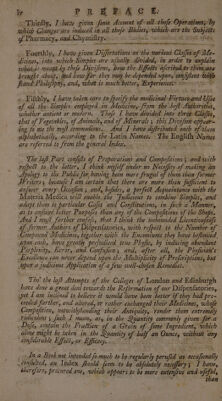 iv PREFACE.
Thirdly, I have given some Account of all those Operations, by
which Changes are induced in all those Bodies, which are the Subjects
of Pharmacy, and Chymistry.
Fourthly, I have given Dissertations on the various Classes of Me-
dicines, into which Simples are usually divided, in order to explain
what is meant by these Divisions, how the Effects ascribed to them are
brought about, and how far they may be depended upon, consistent with
sound Philosophy, and, what is much better, Experience.
Fifthly, I have taken care to specify the medicinal Virtues and Uses
of all the Simples employed in Medicine, from the best Authorities,
whether antient or modern. These I have divided into three Classes,
that of Vegetables, of Animals, and of Minerals; this Division appear-
ing to me the most commodious. And I have distributed each of them
alphabetically, according to the Latin Names. The English Names
are referred to from the general Index.
The last Part consists of Preparations and Compositions; and with
respect to the latter, I think myself under no Necessity of making an
Apology to the Public for having been more frugal of them than former
Writers; because I am certain that there are more than sufficient to
answer every Occasion; and, besides, a perfect Acquaintance with the
Materia Medica will enable the Judicious to combine Simples, and
adapt them to particular Cases and Constitutions, in such a Manner,
as to answer better Purposes than any of the Compositions of the Shops.
And I must farther confess, that I think the unbounded Licentiousness
of former Authors of Dispensatories, with respect to the Number of
Compound Medicines, together with the Encomiums they have bestowed
upon each, have greatly prejudiced true Physic, by inducing abundant
Perplexity, Error, and Confusion; and, after all, the Physician's
Excellence can never depend upon the Multiplicity of Prescriptions, but
upon a judicious Application of a few well-chosen Remedies.
Tho' the last Attempts of the Colleges of London and Edinburgh
have done a great deal towards the Reformation of our Dispensatories,
yet I am inclined to believe it would have been better if they had pro-
ceeded farther, and altered, or rather exchanged their Medicines, whose
Composition, notwithstanding their Antiquity, render them extremely
ridiculous; such I mean, as, in the Quantity commonly given for a
Dose, contain the Fraction of a Grain of some Ingredient, which
alone might be taken in the Quantity of half an Ounce, without any
considerable Effect, or Efficacy.
In a Book not intended so much to be regularly perused as occasionally
consulted, an Index should seem to be absolutely necessary; I have,
therefore, procured one, which appears to be more extensive and useful,
than